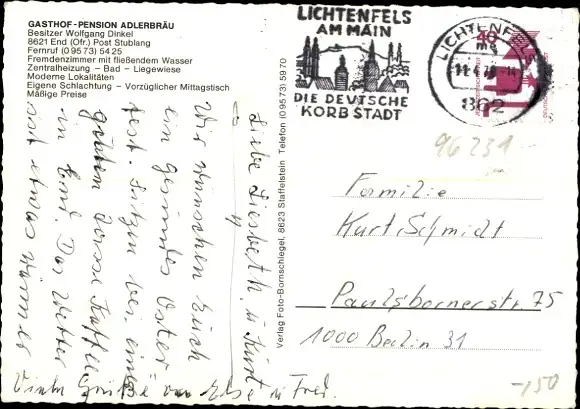 GASTHOF-PENSION ADLERBRÄU
Besitzer Wolfgang Dinkel
8621 End (Ofr.) Post Stublang
Fernruf (0 95 73) 54 25
Fremdenzimmer mit fließendem Wasser
Zentralheizung – Bad – Liegewiese
Moderne Lokalitäten
Eigene Schlachtung – Vorzüglicher Mittagstisch
Mäßige Preise
Liebe Liesbeth u Kurt
Wir wünschen Euch
ein gesundes Oster
fest. Sitzen bei einer
guten Tasse Kaffee
in End. Das Wetter
ist etwas wärmer
Viele Grüße von Else u Fred.
Verlag Foto-Bornschlegel, 8623 Staffelstein Telefon (0 95 73) 59 70
LICHTENFELS
AM MAIN
DIE DEUTSCHE
KORBSTADT
LICHTENFELS
862
40
96231
Familie
Kurt Schmidt
Paulsbornerstr 75
1000 Berlin 31
-150